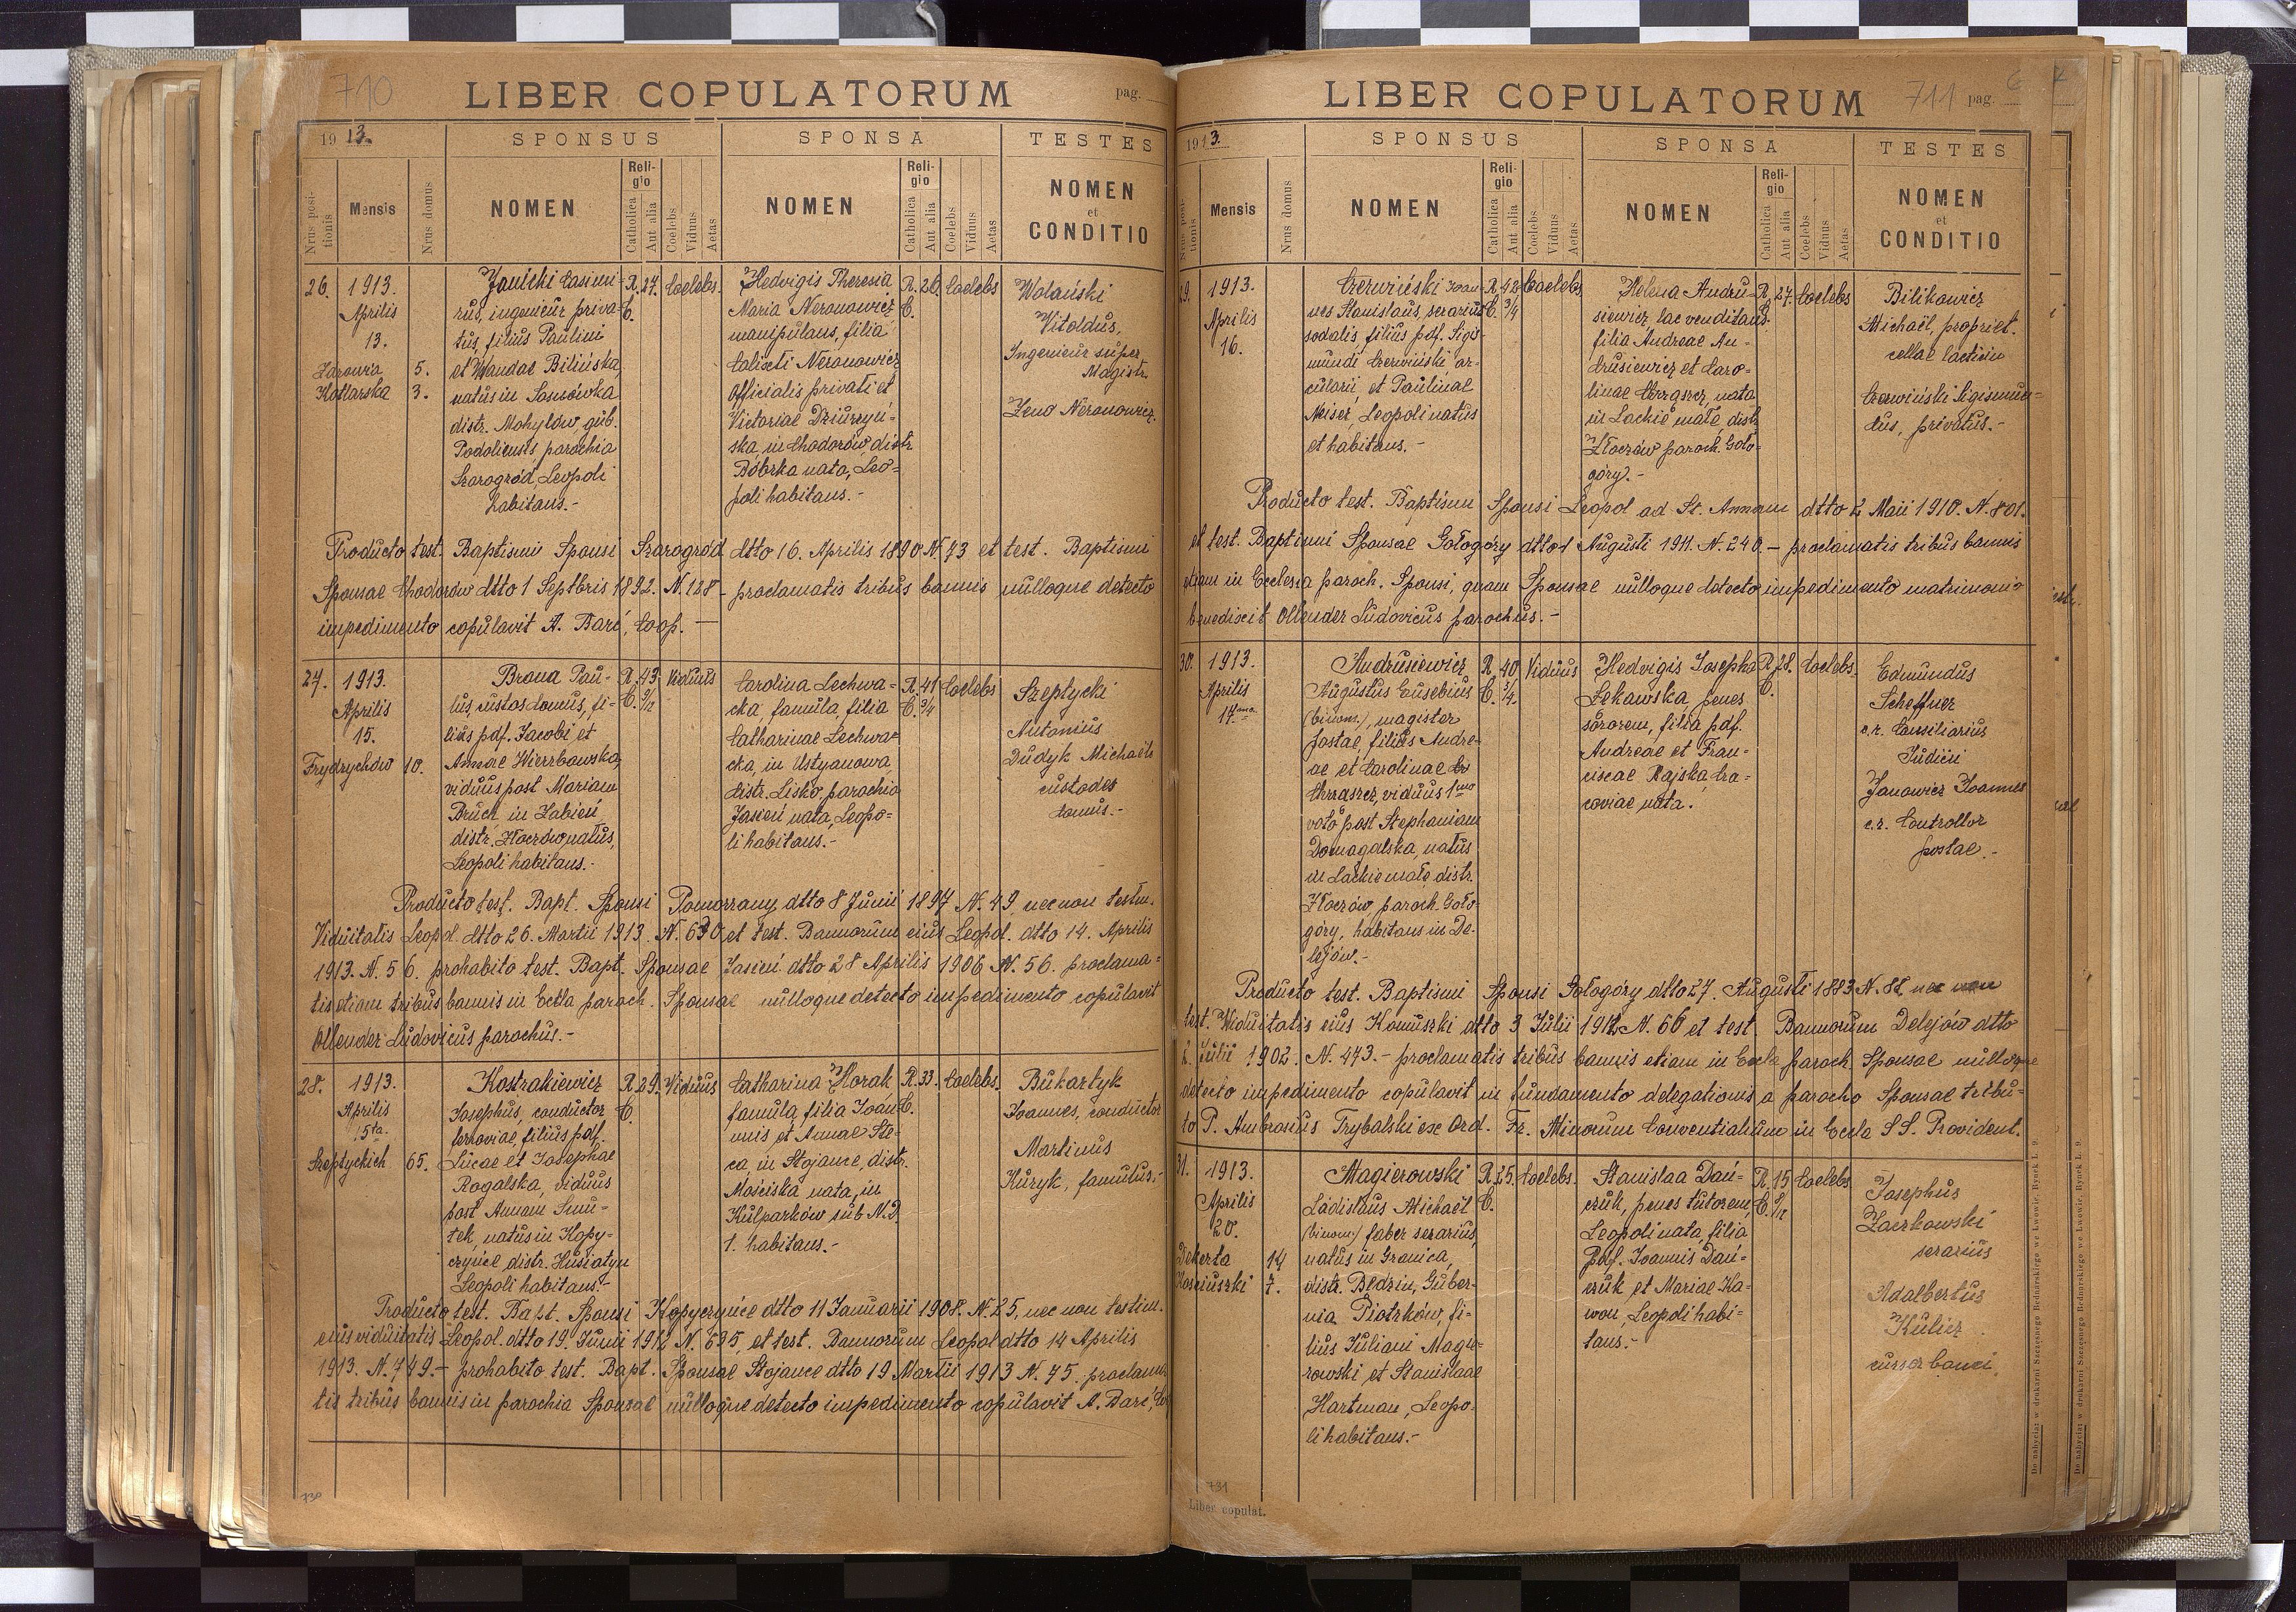 710
LIBER COPULATORUM
pag.
19 13.
SPONSUS
SPONSA
TESTES
Nrus positionis
Mensis
Nrus domus
NOMEN
Religio
Catholica
Aut alia
Coelebs
Viduus
Aetas
NOMEN
Religio
Catholica
Aut alia
Coelebs
Viduus
Aetas
NOMEN
et
CONDITIO
26.
1913.
Aprilis
13.
Zdrowia 5.
Kotlarska 3.
Janicki Casimi-
rus, ingenieur priva-
tus, filius Paulini
et Wandae Bilińska,
natus in Sosnówka
distr. Mohylów, gub.
Podoliensis, parochia
Szarogród, Leopoli
habitans.-
R. C.
27.
Coelebs.
Hedvigis Theresia
Maria Neronowicz
manipulans, filia
Calixti Neronowicz
Officialis privati et
Victoriae Dziurzyń-
ska, in Chodorów distr.
Bóbrka nata, Leo-
poli habitans.-
R. C.
26.
Coelebs
Wolański
Vitoldus,
Ingenieur super
Magistr.
Zeno Neronowicz.
Producto test. Baptismi Sponsi Szarogród dtto 16. Aprilis 1890 N. 73 et test. Baptismi
Sponsae Chodorów dtto 1 Septbris 1892. N. 188 - proclamatis tribus bannis nulloque detecto
impedimento copulavit A. Baré, Coop. —
27.
1913.
Aprilis
15.
Frydrychów 10.
Brona Pau-
lus, custos domus, fi-
lius pdf. Jacobi et
Annae Wierzbowska,
viduus post Mariam
Bruch in Zabień
distr. Złoczów natus,
Leopoli habitans.-
R. C.
43 9/12
Viduus
Carolina Lechwa-
cka, famula, filia
Catharinae Lechwa-
cka, in Ustyanowa,
distr. Lisko, parochia
Jasień nata, Leopo-
li habitans.-
R. C.
41 3/4
Coelebs
Szeptycki
Antonius
Dudyk Michaël
custodes
domus.-
Producto test. Bapt. Sponsi Pomorzany dtto 8 Junii 1897 N. 49, nec non testim.
Viduitatis Leopol. dtto 26. Martii 1913. N. 630, et test. Bannorum eius Leopol. dtto 14. Aprilis
1913. N. 56. prohabito test. Bapt. Sponsae Jasień dtto 28 Aprilis 1906 N. 56. proclama-
tis etiam tribus bannis in Eccla paroch. Sponsae nulloque detecto impedimento copulavit
Ollender Ludovicus parochus.-
28.
1913.
Aprilis
15ta.
Szeptyckich 65.
Kostrakiewicz
Josephus, conductor
ferroviae, filius pdf.
Lucae et Josephae
Rogalska, viduus
post Annam Smu-
tek, natus in Kopy-
czyńce distr. Husiatyn
Leopoli habitans.-
R. C.
29.
Viduus
Catharina Horak
famula, filia Joan-
nis et Annae Ste-
ca, in Stojance, distr.
Mościska nata, in
Kulparków sub N.D.
1. habitans.-
R. C.
33.
Coelebs.
Bukartyk
Joannes, conductor
Martinus
Kuryk, famulus.-
Producto test. Bapt. Sponsi Kopyczyńce dtto 11 Januarii 1908. N. 25, nec non testim.
eius viduitatis Leopol. dtto 19. Junii 1912 N. 695, et test. Bannorum Leopol dtto 14 Aprilis
1913. N. 749. - prohabito test. Bapt. Sponsae Stojance dtto 19 Martii 1913 N. 75. proclama-
tis tribus bannis in parochia Sponsae nulloque detecto impedimento copulavit A. Baré,
730
LIBER COPULATORUM
711
pag. 6
1913.
SPONSUS
SPONSA
TESTES
Nrus positionis
Mensis
Nrus domus
NOMEN
Religio
Catholica
Aut alia
Coelebs
Viduus
Aetas
NOMEN
Religio
Catholica
Aut alia
Coelebs
Viduus
Aetas
NOMEN
et
CONDITIO
29.
1913.
Aprilis
16.
Czerwiński Joan-
nes Stanislaus, serarius
sodalis filius pdf. Sigis-
mundi Czerwiński, ar-
cularii, et Paulinae
Neiser, Leopoli natus
et habitans.-
R. C.
42 3/4
Coelebs
Helena Andru-
siewicz, lac venditans
filia Andreae An-
drusiewicz et Caro-
linae Chrząszcz, nata
in Lackie małe, distr.
Złoczów paroch. Goło-
góry.-
R.
27.
Coelebs
Bilikowicz
Michaël, propriet.
cellae lacticin
Czerwiński Sigismun-
dus, privatus.-
Producto test. Baptismi Sponsi Leopol ad St. Annam dtto 2 Maii 1910. N. 801.
et test. Baptismi Sponsae Gołogóry dtto 1 Augusti 1911. N. 240. - proclamatis tribus bannis
etiam in Ecclesia paroch. Sponsi, quam Sponsae nulloque detecto impedimento matrimonio
benedixit Ollender Ludovicus parochus.-
30.
1913.
Aprilis
17ma
Andrusiewicz
Augustus Eusebius
(binom.), magister
postae, filius Andre-
ae et Carolinae
Chrząszcz, viduus 1mo
voto post Stephaniam
Domagalska, natus
in Lackie małe distr.
Złoczów, paroch. Goło-
góry, habitans in De-
lejów.-
R. C.
40 3/4.
Viduus
Hedvigis Josepha
Łekawska, penes
sororem, filia pdf.
Andreae et Fran-
ciscae Rajska, Cra-
coviae nata.
R. C.
28.
Coelebs.
Edmundus
Scheffner
c.r. Consiliarius
Judicii
Janowicz Joannes
c.r. Controllor
postae.-
Producto test. Baptismi Sponsi Gołogóry dtto 27. Augusti 1883 N. 82 nec non
test. Viduitatis eius Komuszki dtto 3 Julii 1912 N. 66 et test. Bannorum Delejów dtto
2 Julii 1902. N. 473. - proclamatis tribus bannis etiam in Eccla paroch. Sponsae nulloque
detecto impedimento copulavit in fundamento delegationis a parocho Sponsae tribu-
to P. Ambrosius Trybalski ex Ord. Fr. Minorum Conventialium in Eccla S.S. Provident.
31.
1913.
Aprilis
20.
Dekerta 14
Kosciuszki 7.
Magierowski
Ladislaus Michaël
(binom) faber serarius,
natus in Granica,
distr. Będzin, Guber-
nia Piotrków, fi-
lius Juliani Magie-
rowski et Stanislaae
Hartman, Leopo-
li habitans.-
R. C.
25.
Coelebs.
Stanislaa Dań-
czuk, penes tutorem,
Leopoli nata, filia
Pdf. Joannis Dań-
czuk et Mariae Ka-
won, Leopoli habi-
tans.-
R. C.
15 8/12
Coelebs
Josephus
Zaczkowski
serarius
Adalbertus
Kulicz
cursor banci.
731
Liber copulat.
De nabycia w drukarni Szczęsnego Bednarskiego we Lwowie, Rynek L. 9.
De nabycia w drukarni Szczęsnego Bednarskiego we Lwowie, Rynek L. 9.